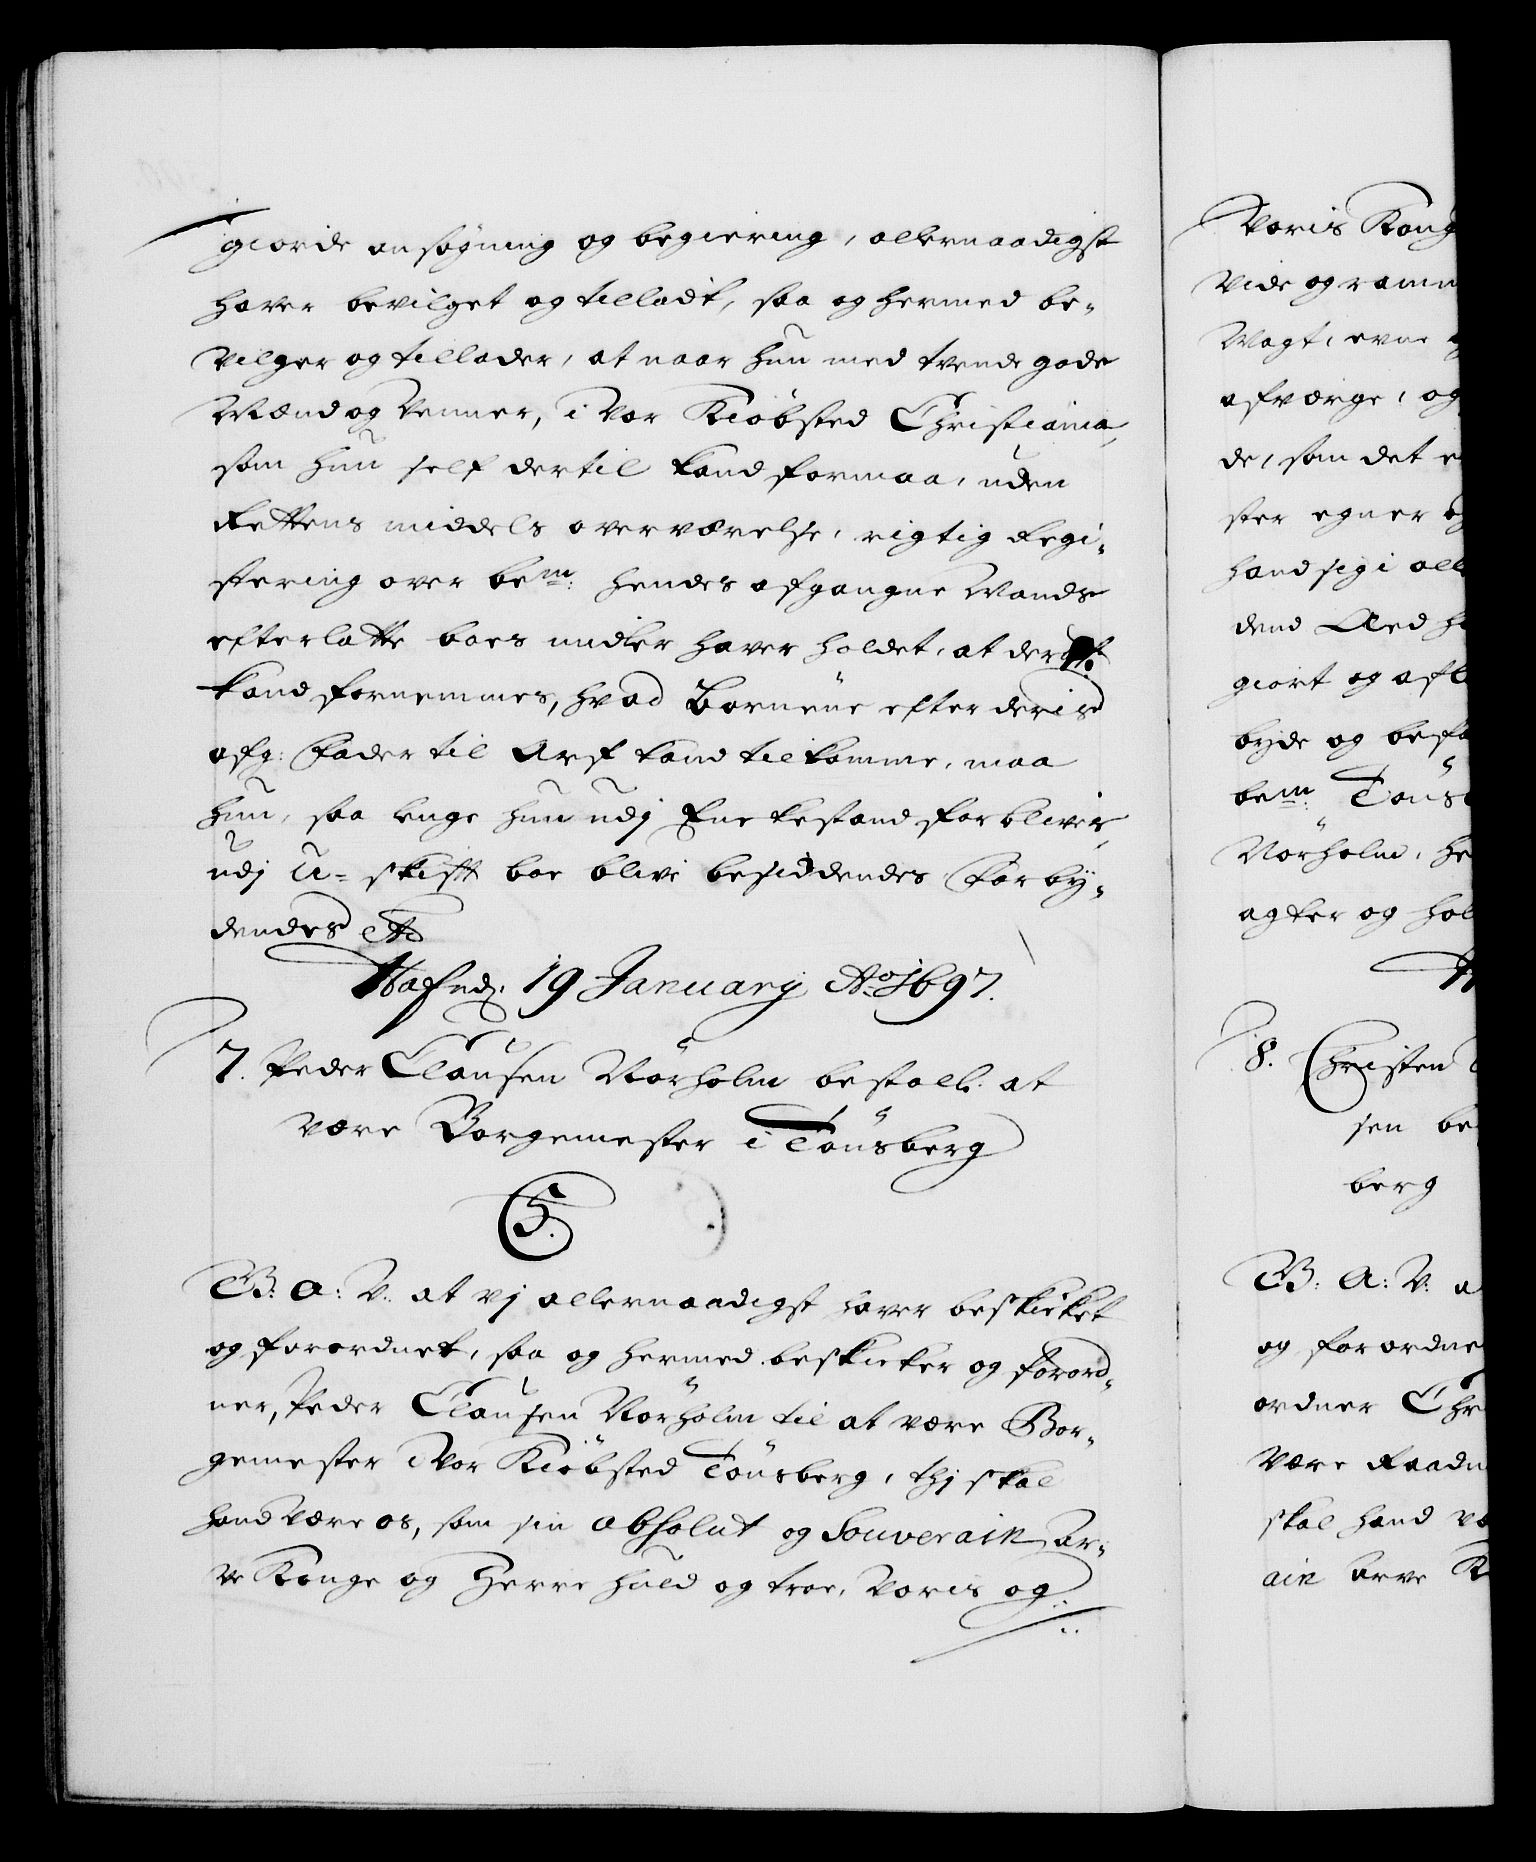 giorde ansøgning og begiering, allernaadigst
hafver bevilget og tilladt, saa og hermed be-
vilger og tillader, at naar hun med tvende gode
Mænd og Venner, i Vor Kiøbsted Christiania,
som hun self dertil kand formaa, uden
Rettens middels overværelse, rigtig Regi-
stering over bem: hendes afgangne Mands
efterlatte boes midler haver holdet, at deraf
kand fornemmes, hvad Børnene efter deris
afg: Fader til Arf kand tilkomme, maa
hun, saa lenge hun udj Enckestand forbliver,
udj U-skift boe blive besiddendes Forby-
dendes etc
Hafnæ: 19 January Ao 1697.
7. Peder Clausen Nørholm bestall. at
være Borgemester i Tønsberg
C5.
G. A: V. at vj allernaadigst haver beskicket
og forordnet, saa og hermed beskicker og forord-
ner, Peder Clausen Nørholm til at være Bor-
gemester i Vor Kiøbsted Tønsberg, thj skal
hand være os, som sin absolut og Souverain Ar-
ve Konge og Herre huld og troe, Voris og
Voris Kong
vide og ramm
Magt, evne og
afværge, og
de, som det e
ster egner og
hand sig i all
dend Aed h
giort og afl
byde og befa
bem: Tøns
Nørholm, he
agter og hol
8. Christen
sen be
berg
G: A: V: a
og forordne
ordner Chr
være Raadm
skal hand væ
ain Arve K